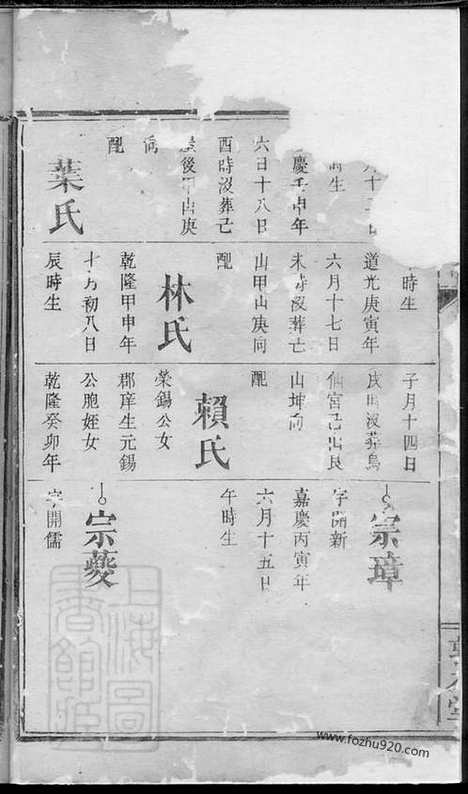 時生
慶壬申年
六日十八日
酉時沒葬己
後甲山庚
配
葉氏
時生
道光庚寅年
六月十七日
未時沒葬亡
山甲山庚向
配
林氏
乾隆甲申年
十月初八日
辰時生
子月十四日
戌時沒葬烏
仙宮己出艮
山坤向
配
賴氏
榮錫公女
郡庠生元錫
公胞姪女
乾隆癸卯年
宗璋
字開新
嘉慶丙寅年
六月十五日
午時生
宗夔
字開儒
上海圖書館藏
www.fozhu920.com